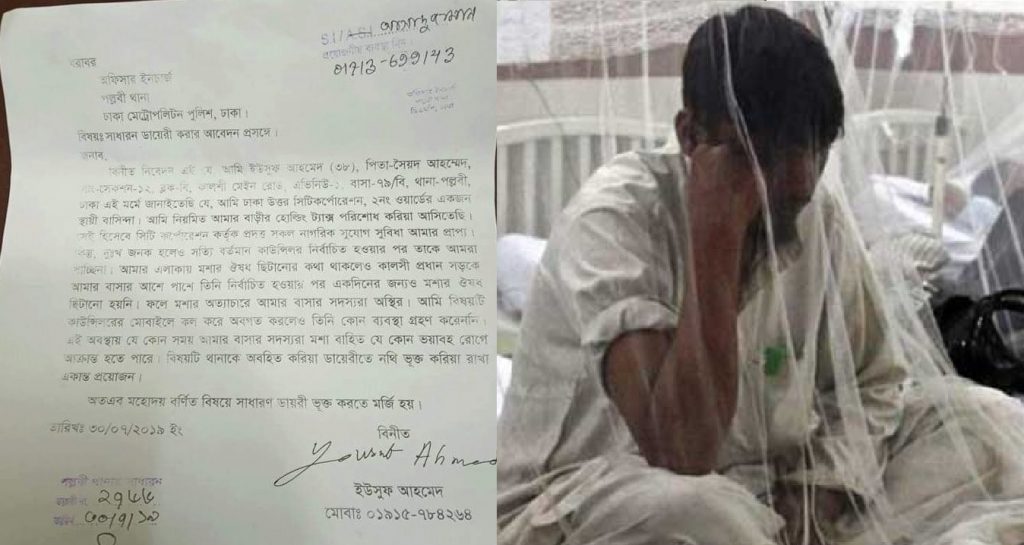 S.I/A.S.I
প্রয়োজনীয় ব্যবস্থা নিন
01713-699143
বরাবর
অফিসার ইনচার্জ
পল্লবী থানা
ঢাকা মেট্রোপলিটন পুলিশ, ঢাকা।
বিষয়ঃ সাধারন ডায়েরী করার আবেদন প্রসঙ্গে।
জনাব,
বিনীত নিবেদন এই যে আমি ইউসুফ আহমেদ (৩৮), পিতা-সৈয়দ আহম্মেদ,
সেকশন-১২, ব্লক-বি, কালশী মেইন রোড, এভিনিউ-১, বাসা-৭৯/বি, থানা-পল্লবী,
ঢাকা এই মর্মে জানাইতেছি যে, আমি ঢাকা উত্তর সিটিকর্পোরেশন, ২নং ওয়ার্ডের একজন
স্থায়ী বাসিন্দা। আমি নিয়মিত আমার বাড়ীর হোল্ডিং ট্যাক্স পরিশোধ করিয়া আসিতেছি।
সেই হিসেবে সিটি কর্পোরেশন কর্তৃক প্রদত্ত সকল নাগরিক সুযোগ সুবিধা আমার প্রাপ্য।
কিন্তু, দুঃখ জনক হলেও সত্যি বর্তমান কাউন্সিলর নির্বাচিত হওয়ার পর তাকে আমরা
পাচ্ছিনা। আমার এলাকায় মশার ঔষধ ছিটানোর কথা থাকলেও কালসী প্রধান সড়কে
আমার বাসার আশে পাশে তিনি নির্বাচিত হওয়ার পর একদিনের জন্যও মশার ঔষধ
ছিটানো হয়নি। ফলে মশার অত্যাচারে আমার বাসার সদস্যরা অস্থির। আমি বিষয়টি
কাউন্সিলরের মোবাইলে কল করে অবগত করলেও তিনি কোন ব্যবস্থা গ্রহণ করেননি।
এই অবস্থায় যে কোন সময় আমার বাসার সদস্যরা মশা বাহিত যে কোন ভয়াবহ রোগে
আক্রান্ত হতে পারে। বিষয়টি থানাকে অবহিত করিয়া ডায়েরীতে নথি ভূক্ত করিয়া রাখা
একান্ত প্রয়োজন।
অতএব মহোদয় বর্ণিত বিষয়ে সাধারণ ডায়রী ভূক্ত করতে মর্জি হয়।
তারিখঃ ৩০/০৭/২০১৯ ইং
বিনীত
Yousuf Ahmed
ইউসুফ আহমেদ
মোবাঃ ০১৯১৫-৭৮৪২৬৪
পল্লবী থানার সাধারন
ডায়রী নং ২৭৮৮
তারিখ ৩০/৭/১৯